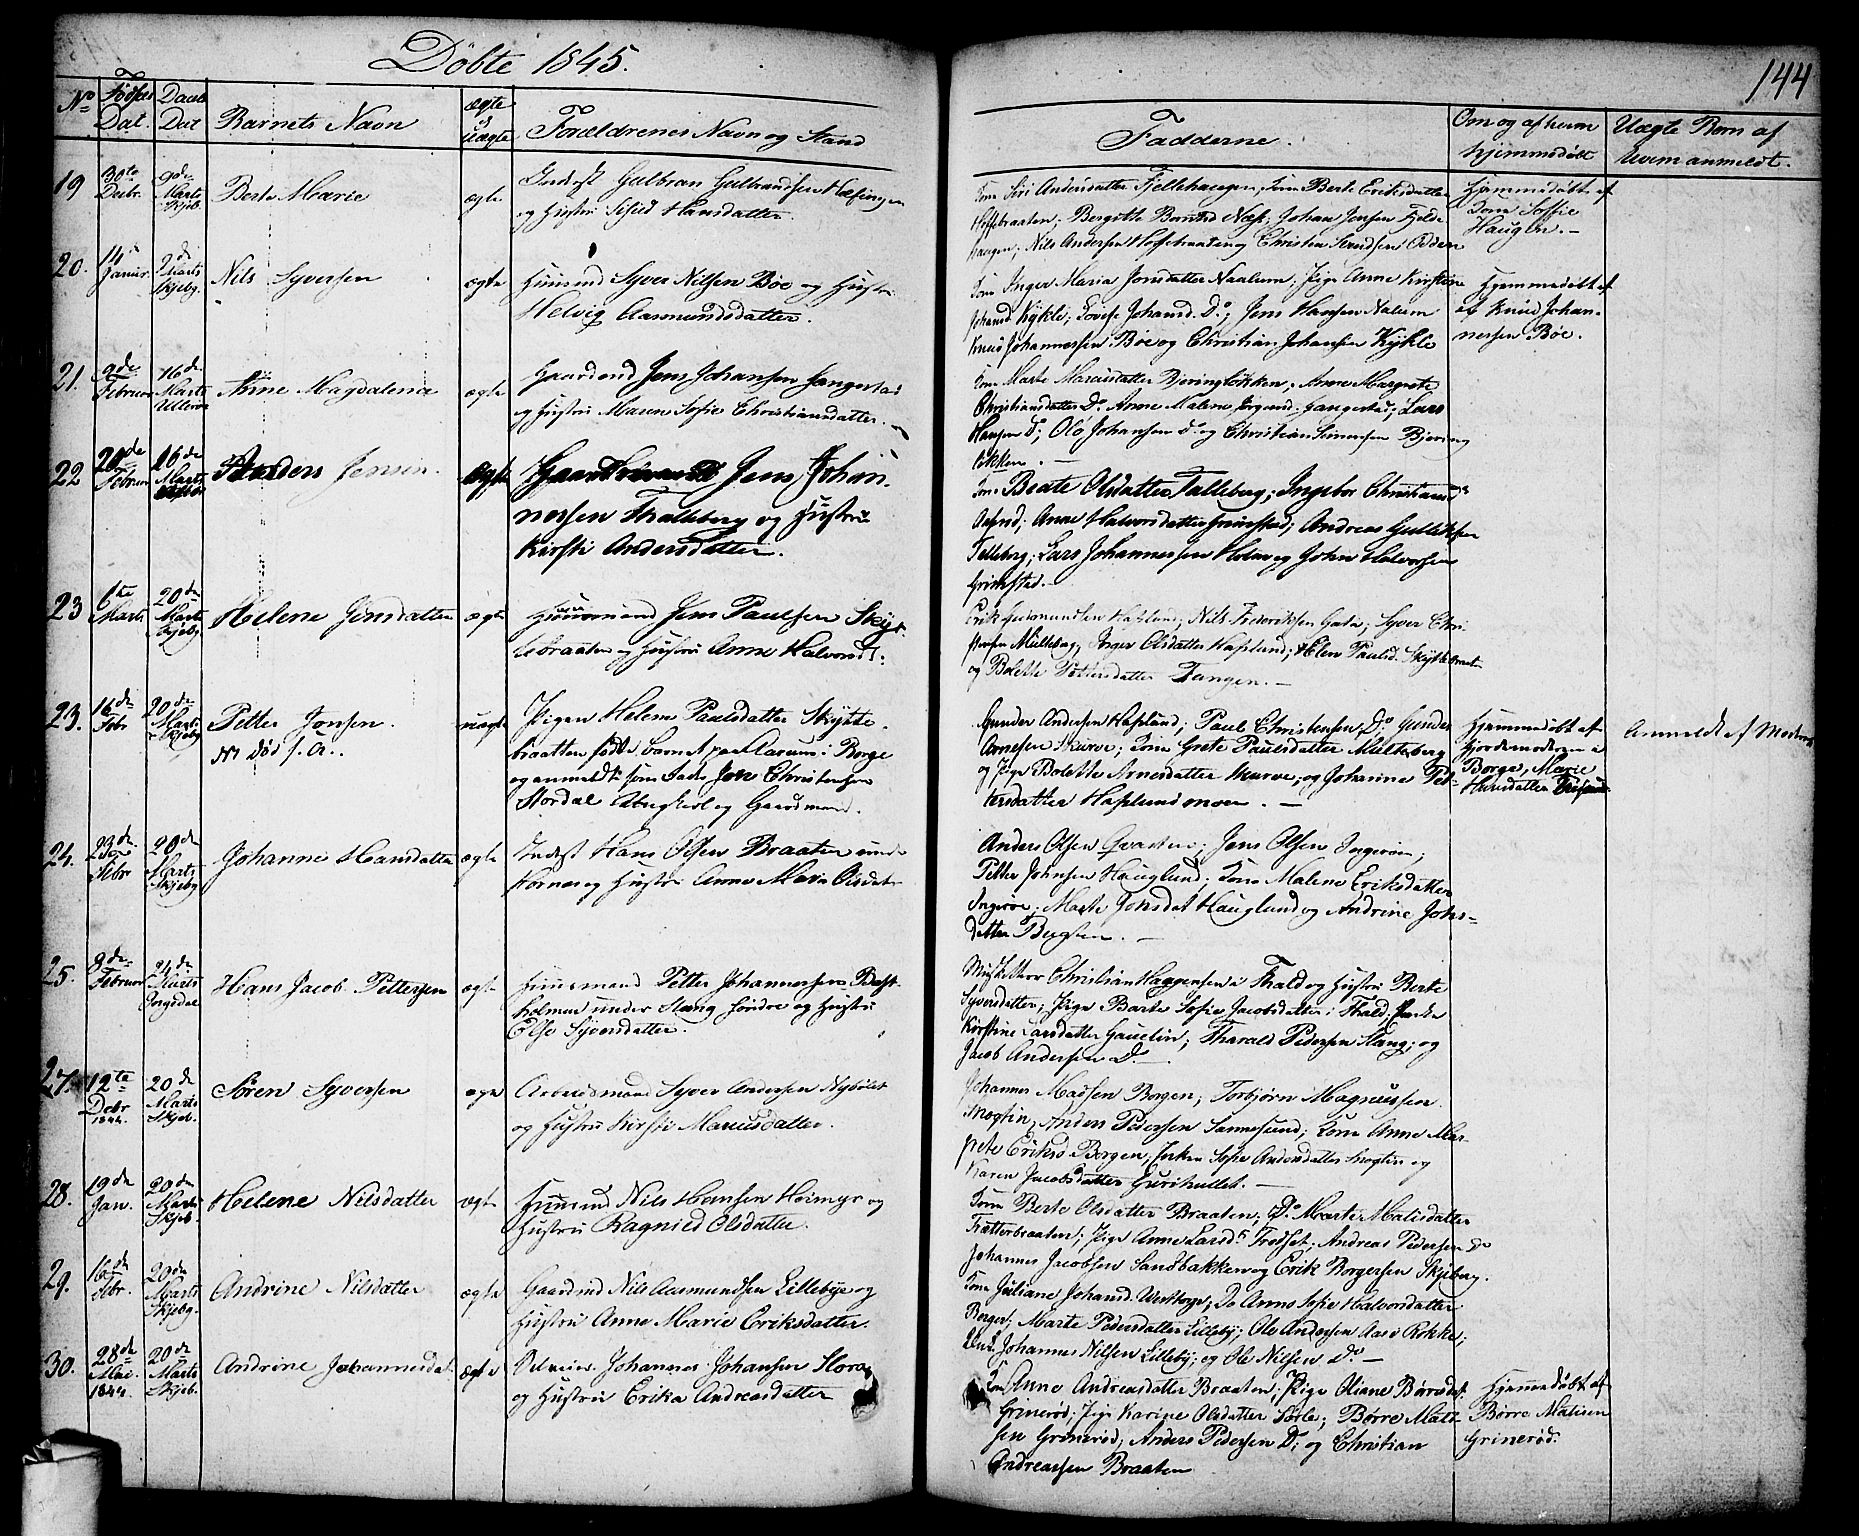 Døbte 1845.
144
No
Fødsels Dat.
Daab Dat
Barnets Navn
ægte
uægte
Forældrenes Navn og Stand
Fadderne.
Om og af hvem
hjemmedøbt
Uægte Børn af
hvem anmeldt.
19 30te Decbr. 9de Marts Skjeb. Berte Marie ægte
Inderst Gulbran Gulbrandsen
og Hustri Hansdatter.
Kone Siri Andersdatter Fjellehaugen, Kone Berte Eriksdatter
Næss; Johan Jensen
haugen; Nils Andersen og Christen
Hjemmedøbt af
Kone Soffie
Haugen.-
20. 14 Januar. 2de Marts Skjebg. Nils Syversen ægte
Huusmd Syver Nilsen Bøe og Hustri
Helvig Aasmundsdatter.
Kone Inger Maria Jonsdatter Naalum; Pige Anne Kirstine
Johansd. Kykle; Lovise Johansd. Do; Jens Hansen Nalum
Knud Johannessen Bøe og Christian Johansen Kykle
Hjemmedøbt af
af Knud Johan-
nessen Bøe.
21. 9de Februar 16de Marts Ullerøe Anne Magdalena ægte
Gaardmd Jens Johansen Hangestad
og Hustri Maren Sofie Christiansdatter.
Kone Marte Mariusdatter Bjeringløkken; Anne Margrete
Christiansdatter Do Anne Malene Jørgensd. Hangestad; Lars
Hansen D; Ole Johansen D. og Christian Simensen Bjering
løkken.-
22 20de Februar 16de Marts Anders Jensen. ægte
Gaardmand Jens Johan-
nessen Thalleberg og Hustru
Kirsti Andersdatter.
Kone Beate Olsdatter Talleberg; Ingebor Christiansd.
Anne Halvorsdatter Grimstad; Andreas Gulliksen
Telleberg; Lars Johannessen Holm og John Halvorsen
Grimstad.-
23 1te Marts 20de Marts Skjebg. Helene Jensdatter ægte
Huusmand Jens Paulsen Skyt-
tebraaten og Hustri Anne Halvorsd:
Erik Gudmundsen Hafslund; Nils Frederiksen Gata; Syver Chri-
stersen Multeberg, Inger Olsdatter Hafslund; Helen Paulsd. Skyttebraaten
og Bolette Pettersdatter Tangen.-
23. 16de Febr 20de Marts Skjebg. Petter Jonsen. uægte
N1 død s. A.
Pigen Helene Paulsdatter Skytte-
braatten fødte barnet paa Aarum i Borge
og anmeldt som Fader Jon Christensen
Mordal Ungkarl og Gaardmand.
Gunder Andersen Hafslund; Paul Christensen Do, Gunder
Arnesen Skurve; Kone Grete Paulsdatter Multeberg
og Pige Bolette Arnesdatter Skurve; og Johanne Pet-
tersdatter Hafslundmoen.-
Hjemmedøbt af
Gjordemoderen i
Borge, Marie
Hansdatter
Anmeldt af Moderen
24. 23de Febr 20de Marts Skjebg Johanne Hansdatter ægte
Inderst Hans Olsen Braaten under
Kornes og Hustri Anne Marie Olsdatr
Anders Olsen Qvasten; Jens Olsen Ingerøen;
Petter Johnsen Hauglund. Kone Malene Eriksdatter
Ingerøe; Marte Jonsdat Hauglund og Andrine Johs-
datter Bugten.-
25. 8de Februar 24de Marts Ingedal Hans Jacob. Pettersen ægte
Huusmand Petter Johannessen Bast-
holmen under Stang Søndre og Hustru
Else Syversdatter.
Musketeer Christian Haagensen i Thald og Hustri Berte
Syversdatter; Pige Berte Sofie Jacobsdatter i Thald.
Kirstine Larsdatter; Tharald Pedersen Stang; og
Jacob Andersen D.-
27. 12te Debr 1844. 20de Marts Skjeb. Søren Syversen ægte
Arbeidsmand Syver Andersen Nybølet
og Hustri Kirsti Mariusdatter.
Johannes Madsen Borgen; Torbjørn Magnussen
Mogstin, Anders Pedersen Sannesund; Kone Anne Mar-
grete Eriksd. Borgen; Sofie Andersdatter Mogtin og
Karen Jacobsdatter Gurihullet.-
28. 19de Jan. 20de Marts Skjeb. Helene Nilsdatter ægte
Huusmd Nils Hansen Heimyr og
Hustri Ragnild Olsdatter.
Kone Berte Olsdatter Braaten, Do Marte Matisdatter
Tratterbraaten; Pige Anne Larsd. Fredset; Andreas Pedersen Do
Johannes Jacobsen Sandbakken og Erik Borgersen Skjeberg.
29. 16de Febr. 20de Marts Skjebg. Andrine Nilsdatter ægte
Gaardmd Nils Aasmundsen Lillebye og
Hustri Anne Marie Eriksdatter.
Kone Juliane Johansd. Westborge; Do Anne Sofie Halvorsdatter
Borger; Marte Pedersdatter Lilleby; Ole Andersen Aas i Rokke;
Johannes Nilsen Lilleby; og Ole Nilsen Do.-
30. 28de Mai. 1844. 20de Marts Skjeb. Andrine Johannesdat. ægte
Selveier. Johannes Johansen
og Hustri Erika Andreasdatter
Kone Anne Andreasdatter Braaten; Pige Oliane Børresdat.
Grinerød; Pige Karine Olsdatter Sørle; Børre Mati-
sen Grinerød, Anders Pedersen D; og Christian
Andreassen Braaten
Hjemmedøbt af
Børre Matisen
Grinerød.